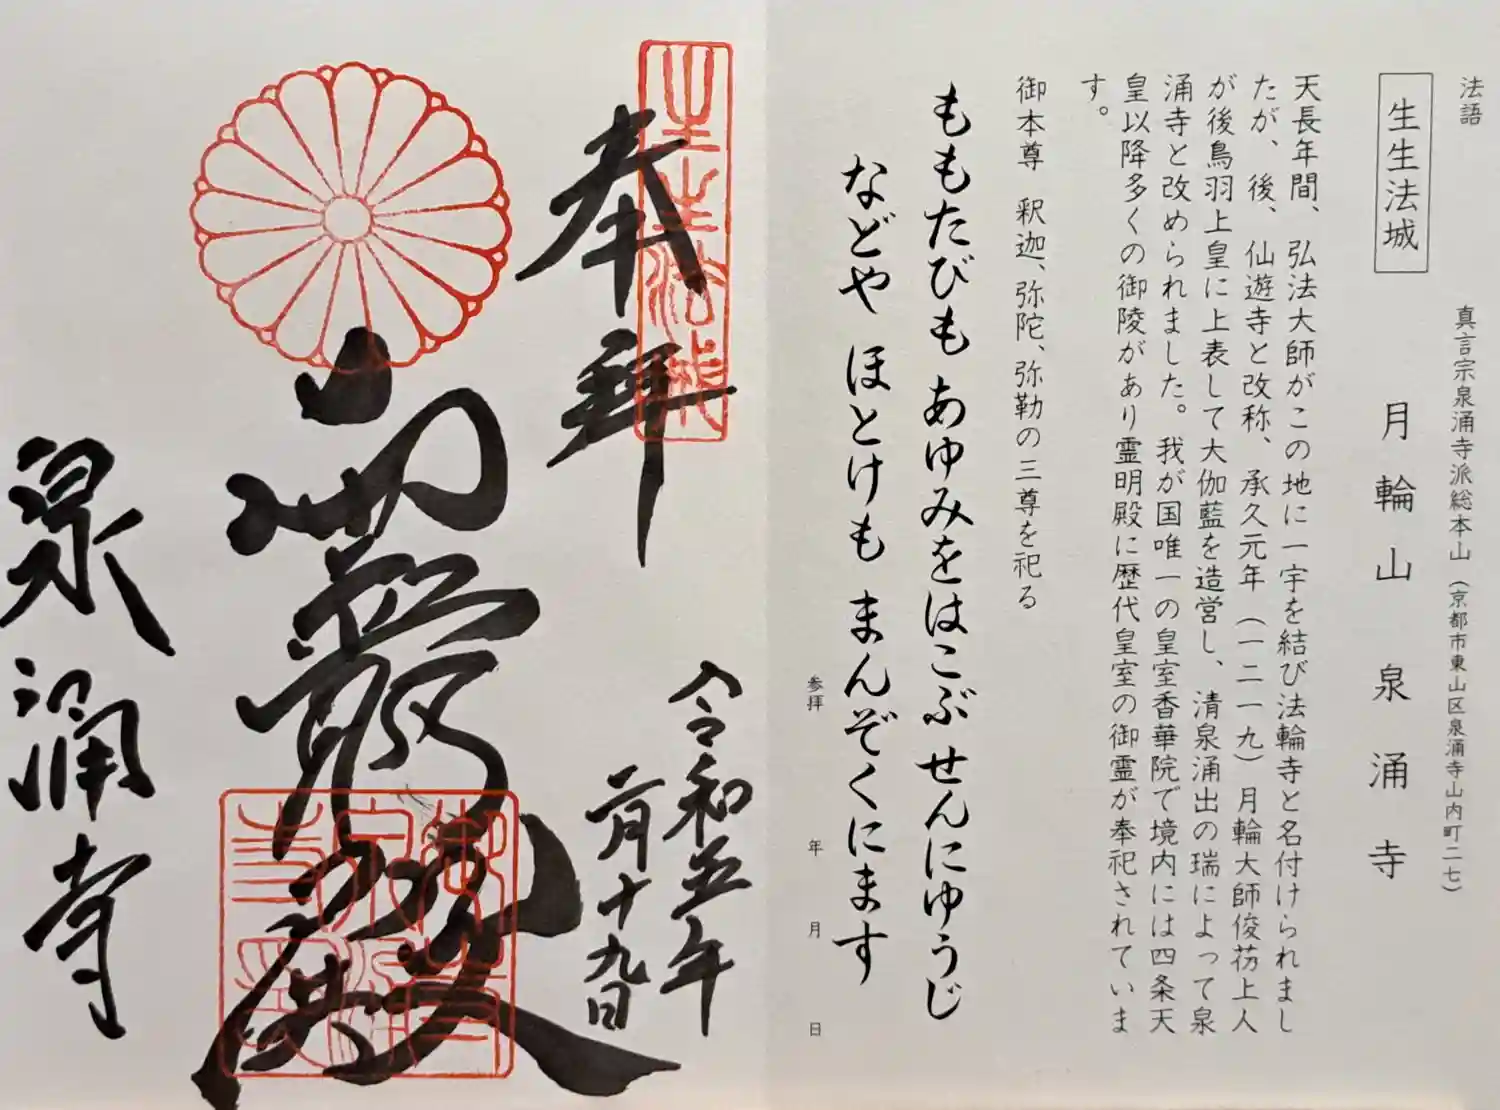 法語
生生法城
真言宗泉涌寺派総本山（京都市東山区泉涌寺山内町二七）
月輪山 泉涌寺
天長年間、弘法大師がこの地に一宇を結び法輪寺と名付けられまし
たが、後、仙遊寺と改称、承久元年（一二一九）月輪大師俊芿上人
が後鳥羽上皇に上表して大伽藍を造営し、清泉涌出の瑞によって泉
涌寺と改められました。我が国唯一の皇室香華院で境内には四条天
皇以降多くの御陵があり霊明殿に歴代皇室の御霊が奉祀されていま
す。
御本尊 釈迦、弥陀、弥勒の三尊を祀る
ももたびも あゆみをはこぶ せんにゆうじ
などや ほとけも まんぞくにます
参拝 年 月 日
生生法城
奉拝
令和五年
二月十九日
泉涌寺